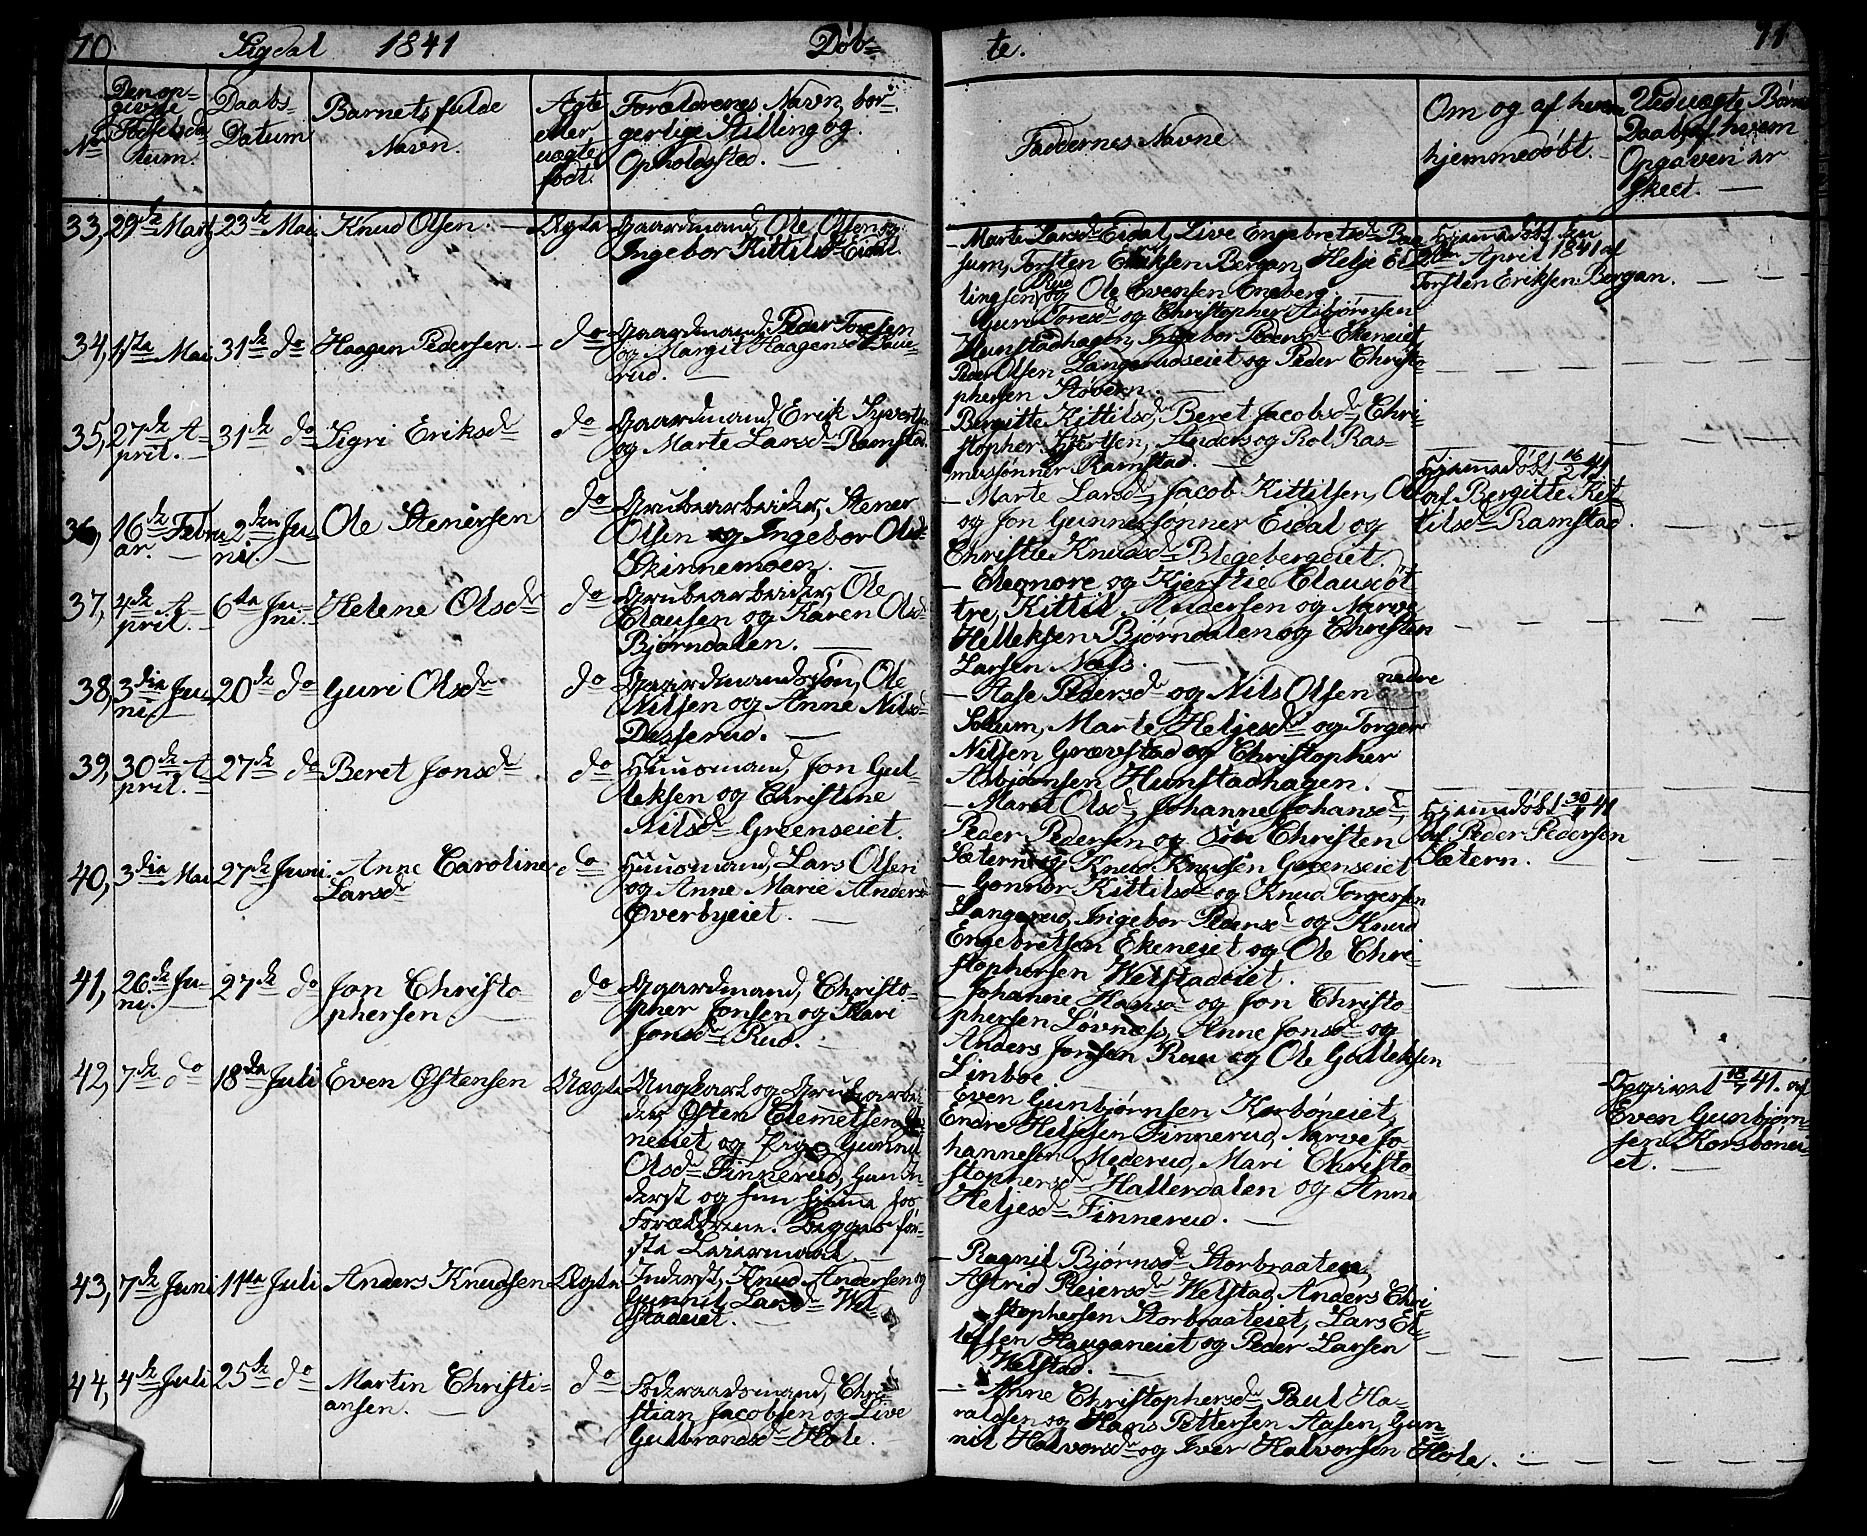 70 Sigdal 1841 Døb= te. 71
No
Den op=
givne
Fødselsda
tum.
Daabs=
Datum
Barnets fulde
Navn.
Ægte
eller
uægte
født.
Forældrenes Navn, bor=
gerlige Stilling og
Opholdssted. —
Faddernes Navne
Om og af hvem
hjemmedøbt. —
Uduægte Børns
Daab, af hvem
Opgaven er
skeet. —
33, 29de Marts 23de Mai. Knud Olsen. — Ægte Gaardmand, Ole Olsen og
Ingebor Kittilsdr Eidal.
— Marte Larsdr Eidal, Live Engebretsdr Baa
sum, Torsten Eriksen Bergan, Helje El
lingsen Rud og Ole Evensen Eneberg. —
Hjemmedøbt den
April 1841 af
Torsten Eriksen Bergan. —
34, 11te Mai 31de do Haagen Pedersen. — do Gaardmand, Peder Toresen
og Margit Haagensdr
rud. —
— Guri Toresdr og Christopher Asbjørnsen
Hunstadhagen, Ingebor Pedersdr Ekeneiet,
Peder Olsen Langerudseiet og Peder Christo=
phersen Støvern. —
35, 27de A=
pril. —
31de do Sigri Eriksdr do Gaardmand, Erik Syvertsen
og Marte Larsdr Ramstad.
Bergitte Kittilsdr, Beret Jacobsdr, Chri=
stopher Syvertsen, Anders og Rol. Ras=
mussønner Ramstad. —
Hjemmedøbt 16/5 41
af Bergitte Kit=
tilsdr Ramstad. —
36, 16de Febru
ar. —
2den Ju=
ni. —
Ole Stenersen do Grubearbeider, Stener
Olsen og Ingebor Olsdr
Skinnemoen. —
— Marte Larsdr, Jacob Kittilsen, Ole
og Jon Gunnersønner Eidal og
Christie Knudsdr Blegebergeiet. —
37, 4de A=
pril. —
6te Ju=
ni. —
Helene Olsdr do Grubearbeider, Ole
Clausen og Karen Olsdr
Bjørndalen. —
— Eleonore og Kjerstie Clausdøt
tre, Kittil Andersen og Narve
Helleksen Bjørndalen og Christen
Larsen Næss. —
38, 3die Ju=
ni. —
20de do Guri Olsdr do Gaardmandssøn, Ole
Nilsen og Anne Nilsdr
Dasserud. —
— Aase Pedersdr og Nils Olsen nedre
Solum, Marte Heljesdr og Torger
Nilsen Grævstad og Christopher
Asbjørnsen Hunstadhagen. —
39, 30de A=
pril. —
27de do Beret Jonsdr do Huusmand, Jon Gul=
leksen og Christine
Nilsdr Greenseiet.
— Maret Olsdr, Johanne Johansdr,
Peder Pedersen og søn Christen
Sætern og Knud Knudsen Greenseiet.
Hjemmedøbt 30/4 41
af Peder Pedersen
Sætern. —
40, 3die Mai 27de Juni. Anne Caroline
Larsdr
do Huusmand, Lars Olsen
og Anne Marie Andersdr
Øverbyeiet. —
— Gonnor Kittilsdr og Knud Torgersen
Langerud, Ingebor Pedersdr og Knud
Engebretsen Ekeneiet og Ole Chri=
stophersen Welstadeiet. —
41, 26de Ju=
ni. —
27de do Jon Christo=
phersen. —
do Gaardmand, Christo=
pher Jonsen og Kari
Jonsdr Rud. —
— Johanne Hansdr og Jon Christo
phersen Løvnæss, Anne Jonsdr og
Anders Jonsen Rud og Ole Gulleksen
Linboe
42, 7de do 18de Juli Even Østensen Uægte Ungkarl og Grubearbei
der, Østen Clemmetsen
neiet og Pige Gunnil
Olsdr Finnerud, han In
derst og hun hjemme hos
Forældrene. Begges før=
ste Leiermaal. —
— Even Gunbjørnsen Korsbøneiet,
Endre Heljesen Finnerud, Narve Jo=
hannesen Mederud, Mari Christo
phersdr Hallerdalen og Anne
Heljesdr Finnerud. —
Opgivet 18/7 41. af
Even Gunbjørn=
sen Korsbønei=
et. —
43, 7de Juni 11te Juli Anders Knudsen Ægte Inderst, Knud Andersen og
Gunnil Larsdr Wel=
stadeiet. —
— Ragnil Bjørnsdr Storbraaten,
Astrid Reiersdr Welstad, Anders Chri=
stophersen Storbraateiet, Lars El=
lefsen Hauganeiet og Peder Larsen
Welstad. —
44, 4de Juli 25de do Martin Christi=
ansen. —
do Føderaadsmand, Chri
stian Jacobsen og Live
Gulbrandsdr Hole.
— Anne Christophersdr, Paul Ha=
raldsen og Hans Pettersen Aasen, Gun=
nil Halvorsdr og Iver Halvorsen Hole.